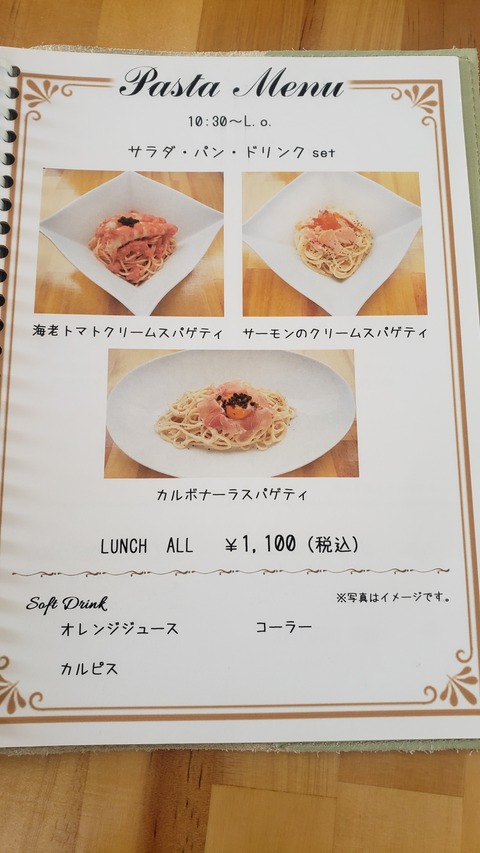 Pasta Menu
10:30〜L.o.
サラダ・パン・ドリンク set
海老トマトクリームスパゲティ
サーモンのクリームスパゲティ
カルボナーラスパゲティ
LUNCH ALL ¥1,100 (税込)
※写真はイメージです。
Soft Drink
オレンジジュース
コーラー
カルピス